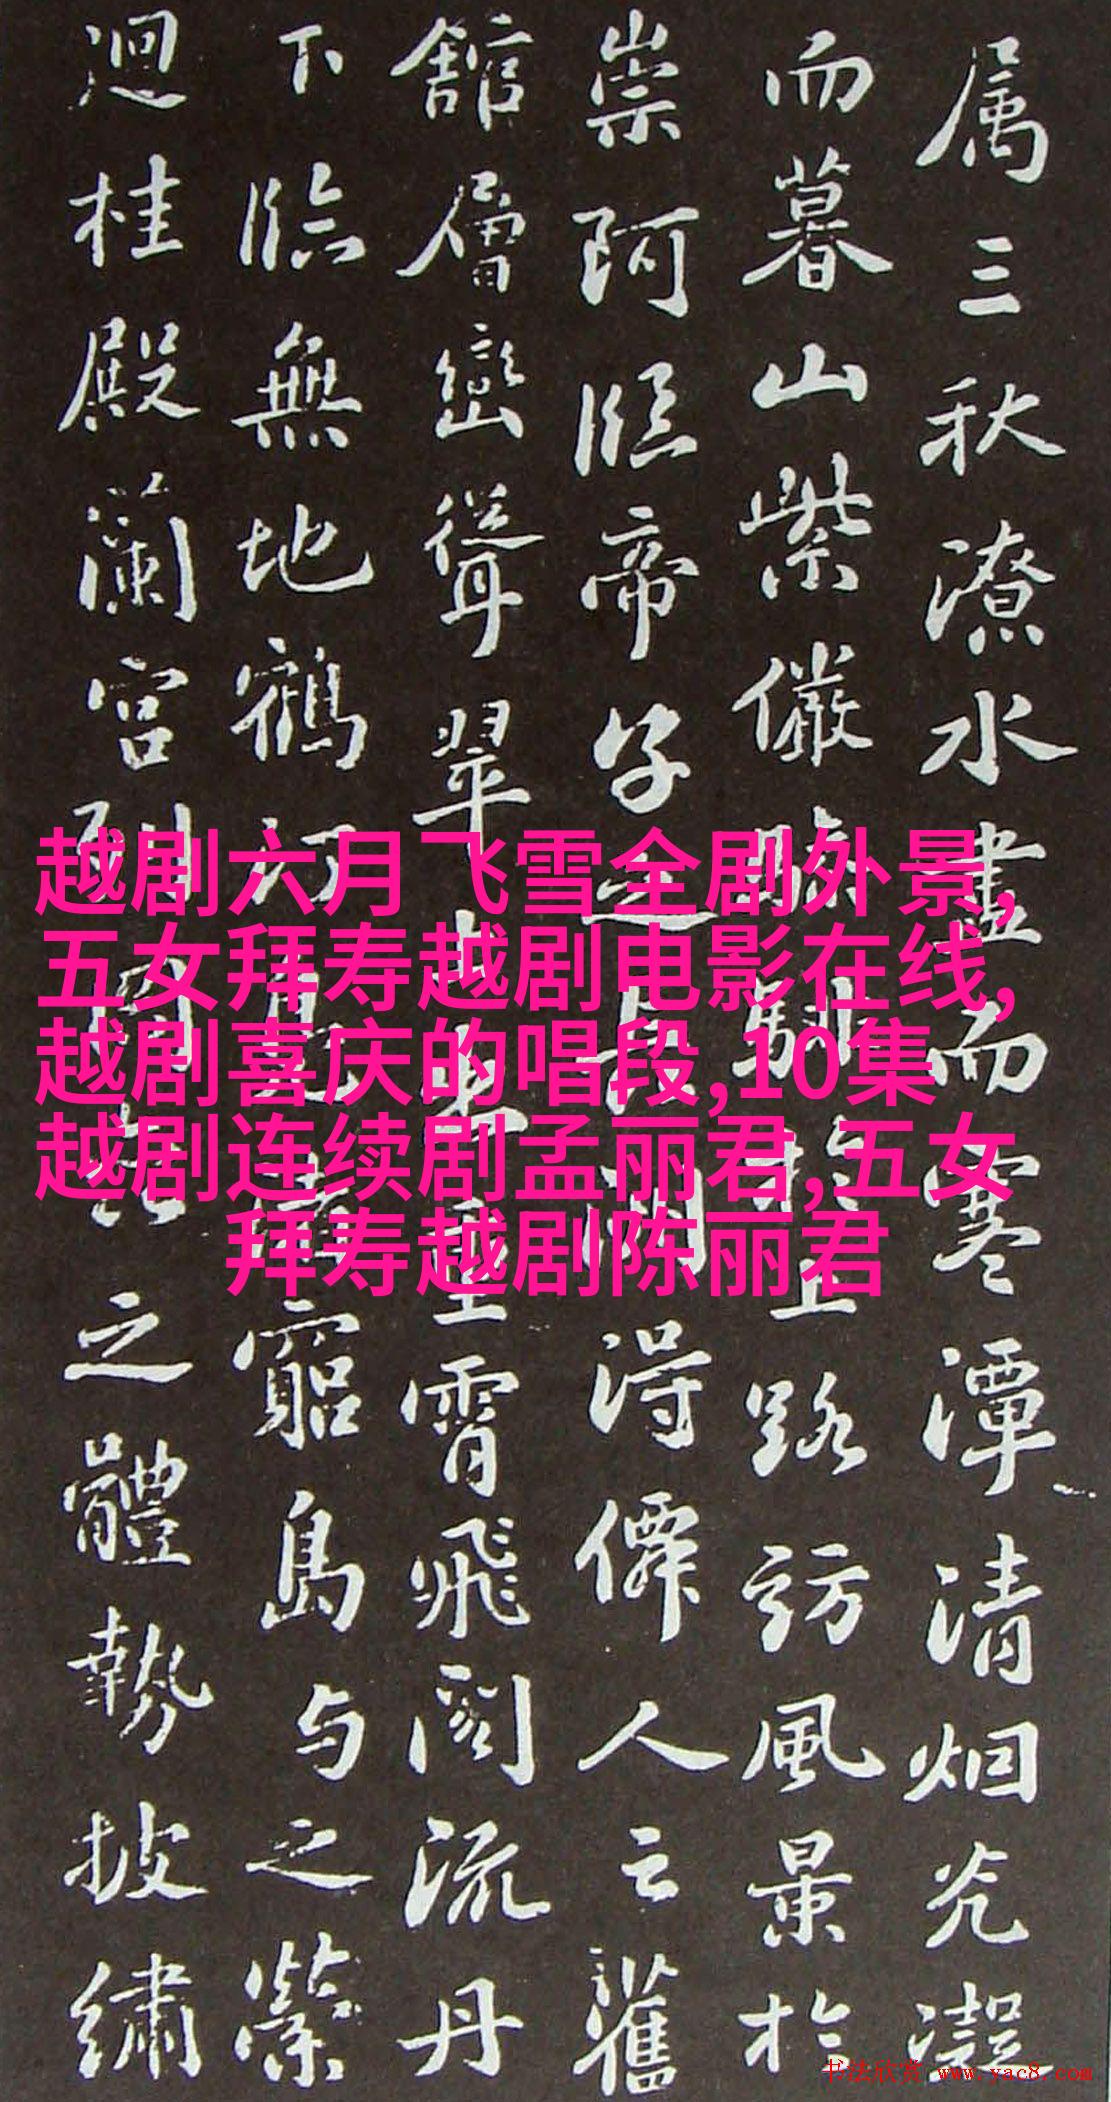 属三秋潦水盡而寒潭清烟光凝
而暮山紫儼驂騑於上路訪風景於
崇阿臨帝子之長洲得僊人之舊
館層巒聳翠上出重霄飛閣流丹
下臨無地鶴汀鳧渚窮島与之縈
迴桂殿蘭宫列岡巒之體勢披繡
越剧六月飞雪全剧外景,
五女拜寿越剧电影在线,
越剧喜庆的唱段,10集
越剧连续剧孟丽君,五女
拜寿越剧陈丽君
书法欣赏 www.yac8.com